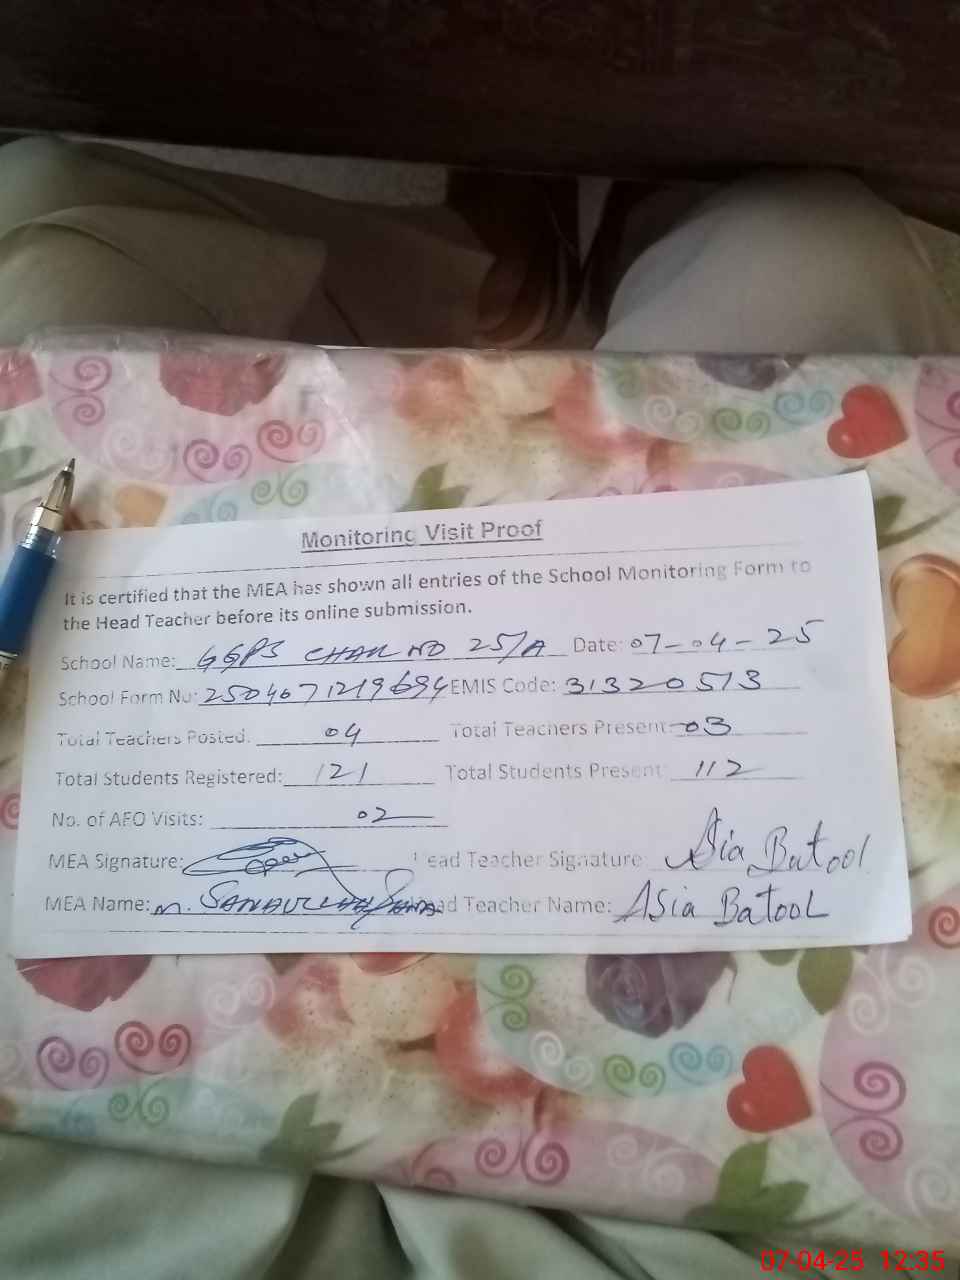 Monitoring Visit Proof
It is certified that the MEA has shown all entries of the School Monitoring Form to
the Head Teacher before its online submission.
School Name: GGPS CHAK NO 25/A Date: 07-04-25
School Form No: 2504071219694 EMIS Code: 31320513
Total Teachers Posted: 04 Total Teachers Present: 03
Total Students Registered: 121 Total Students Present: 112
No. of AEO Visits: 02
MEA Signature: Head Teacher Signature: Asia Batool
MEA Name: M. SANAULLAH Head Teacher Name: Asia Batool
07-04-25 12:35